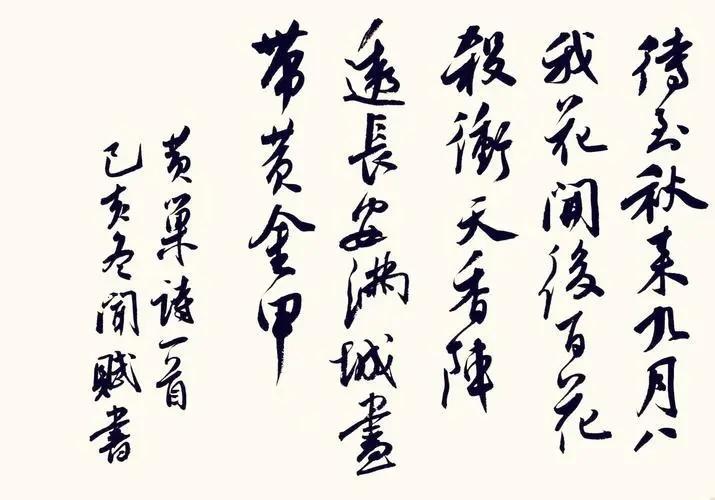 待到秋來九月八
我花開後百花
殺衝天香陣
透長安滿城盡
帶黃金甲
黃巢詩一首
己亥冬聞賦書